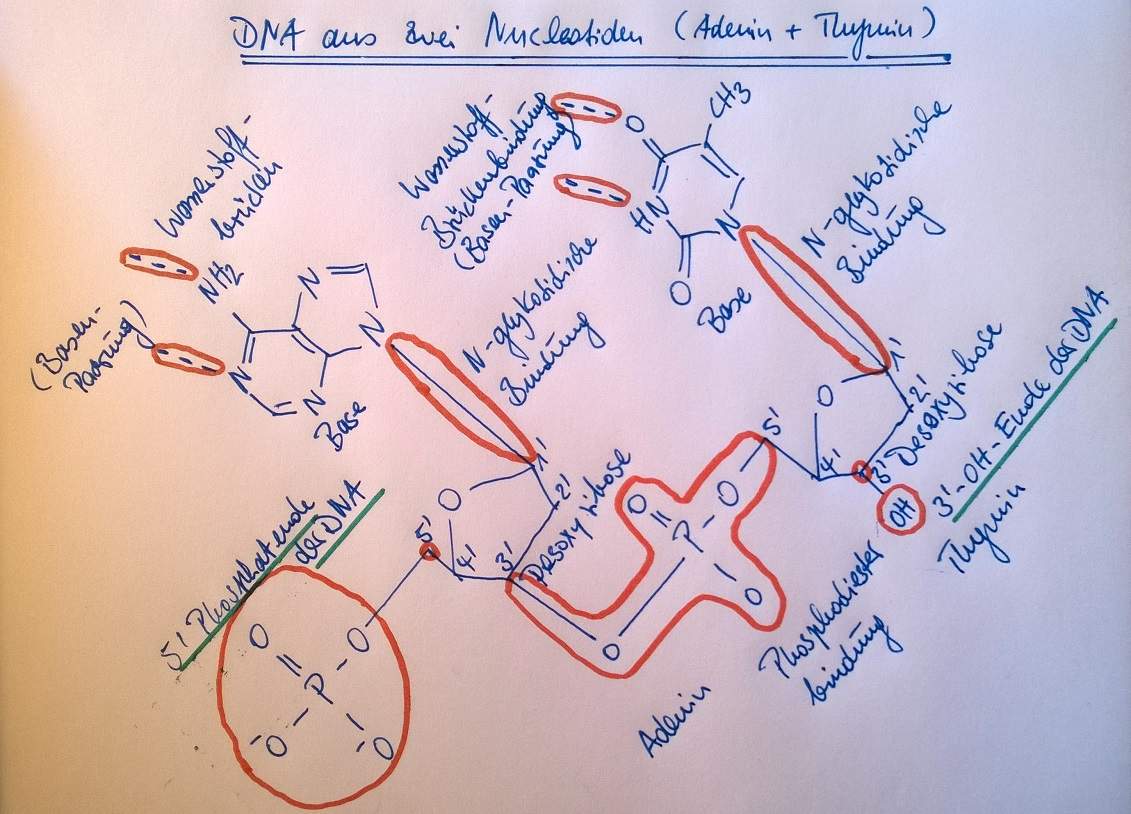 DNA aus zwei Nucleotiden (Adenin + Thymin)
Wasserstoff-
brücken
(Basen-
Paarung)
NH2
N
N
N
N
Base
N-glykosidische
Bindung
Wasserstoff-
Brückenbindung
(Basen-Paarung)
O
CH3
HN
N
O
Base
N-glykosidische
Bindung
1'
2'
3'
4'
5'
O
Desoxyribose
OH
3'-OH-Ende der DNA
Thymin
1'
2'
3'
4'
5'
O
Desoxyribose
O
P
O
O
O
Phosphodiester
bindung
Adenin
5' Phosphatende
der DNA
O
P
O
-O
-O